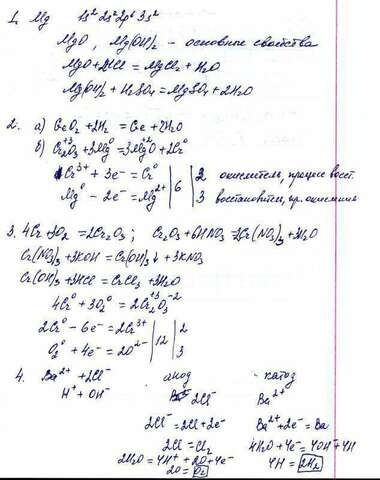 1. Mg 1s² 2s² 2p⁶ 3s²
MgO, Mg(OH)₂ – основные свойства
MgO + 2HCl = MgCl₂ + H₂O
Mg(OH)₂ + H₂SO₄ = MgSO₄ + 2H₂O
2. а) GeO₂ + 2H₂ = Ge + 2H₂O
б) Cr₂⁺³O₃ + 3Mg⁰ = 3Mg⁺²O + 2Cr⁰
Cr³⁺ + 3e⁻ = Cr⁰ | 6 | 2 окислитель, процесс восст.
Mg⁰ – 2e⁻ = Mg²⁺ | 3 восстановитель, пр. окисления
3. 4Cr + 3O₂ = 2Cr₂O₃; Cr₂O₃ + 6HNO₃ = 2Cr(NO₃)₃ + 3H₂O
Cr(NO₃)₃ + 3KOH = Cr(OH)₃↓ + 3KNO₃
Cr(OH)₃ + 3HCl = CrCl₃ + 3H₂O
4Cr⁰ + 3O₂⁰ = 2Cr₂⁺³O₃⁻²
2Cr⁰ – 6e⁻ = 2Cr³⁺ | 12 | 2
O₂⁰ + 4e⁻ = 2O²⁻ | 3
4. Ba²⁺ + 2Cl⁻ анод катод
H⁺ + OH⁻ 2Cl⁻ Ba²⁺
2Cl⁻ = 2Cl + 2e⁻ Ba²⁺ + 2e⁻ = Ba
2Cl = Cl₂ 4H₂O + 4e⁻ = 4OH⁻ + 4H
2H₂O = 4H⁺ + 2O + 4e⁻ 4H = 2H₂
2O = O₂